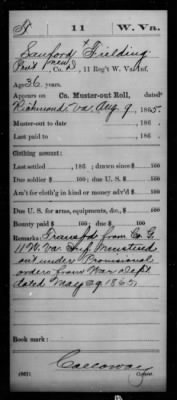 S | 11 | W. Va.
Sanford Fielding
Pvt, New Co. D, 11 Reg't W. Va. Inf.
Age 36 years.
Appears on Co. Muster-out Roll, dated
Richmond Va. Aug. 9, 1865.
Muster-out to date , 186 .
Last paid to , 186 .
Clothing account:
Last settled , 186 ; drawn since $ 100
Due soldier $ 100; due U. S. $ 100
Am't for cloth'g in kind or money adv'd $ 100
Due U. S. for arms, equipments, &c., $ 100
Bounty paid $ 100; due $ 100
Remarks: Transf'd from Co. G.
11" W. Va. Inf. Mustered
out under Provisional
orders from War Dept
dated May 29 1865.
Book mark:
Calloway
Copyist.